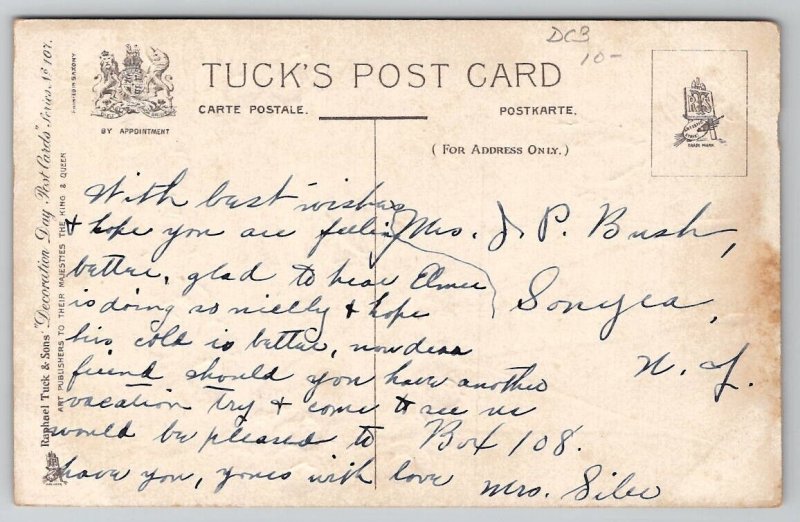 DC3
10-
TUCK'S POST CARD
CARTE POSTALE.
POSTKARTE.
(FOR ADDRESS ONLY.)
BY APPOINTMENT
PRINTED IN SAXONY
Raphael Tuck & Sons' "Decoration Day Post Cards" Series No 107.
ART PUBLISHERS TO THEIR MAJESTIES THE KING & QUEEN
TRADE MARK
With best wishes
& hope you are feeling
better, glad to hear Elmer
is doing so nicely & hope
his cold is better, now dear
friend should you have another
vacation try & come & see us
would be pleased to
have you, yours with love
Mrs.
Mrs. J. P. Bush,
Sonyea,
N. Y.
Box 108.